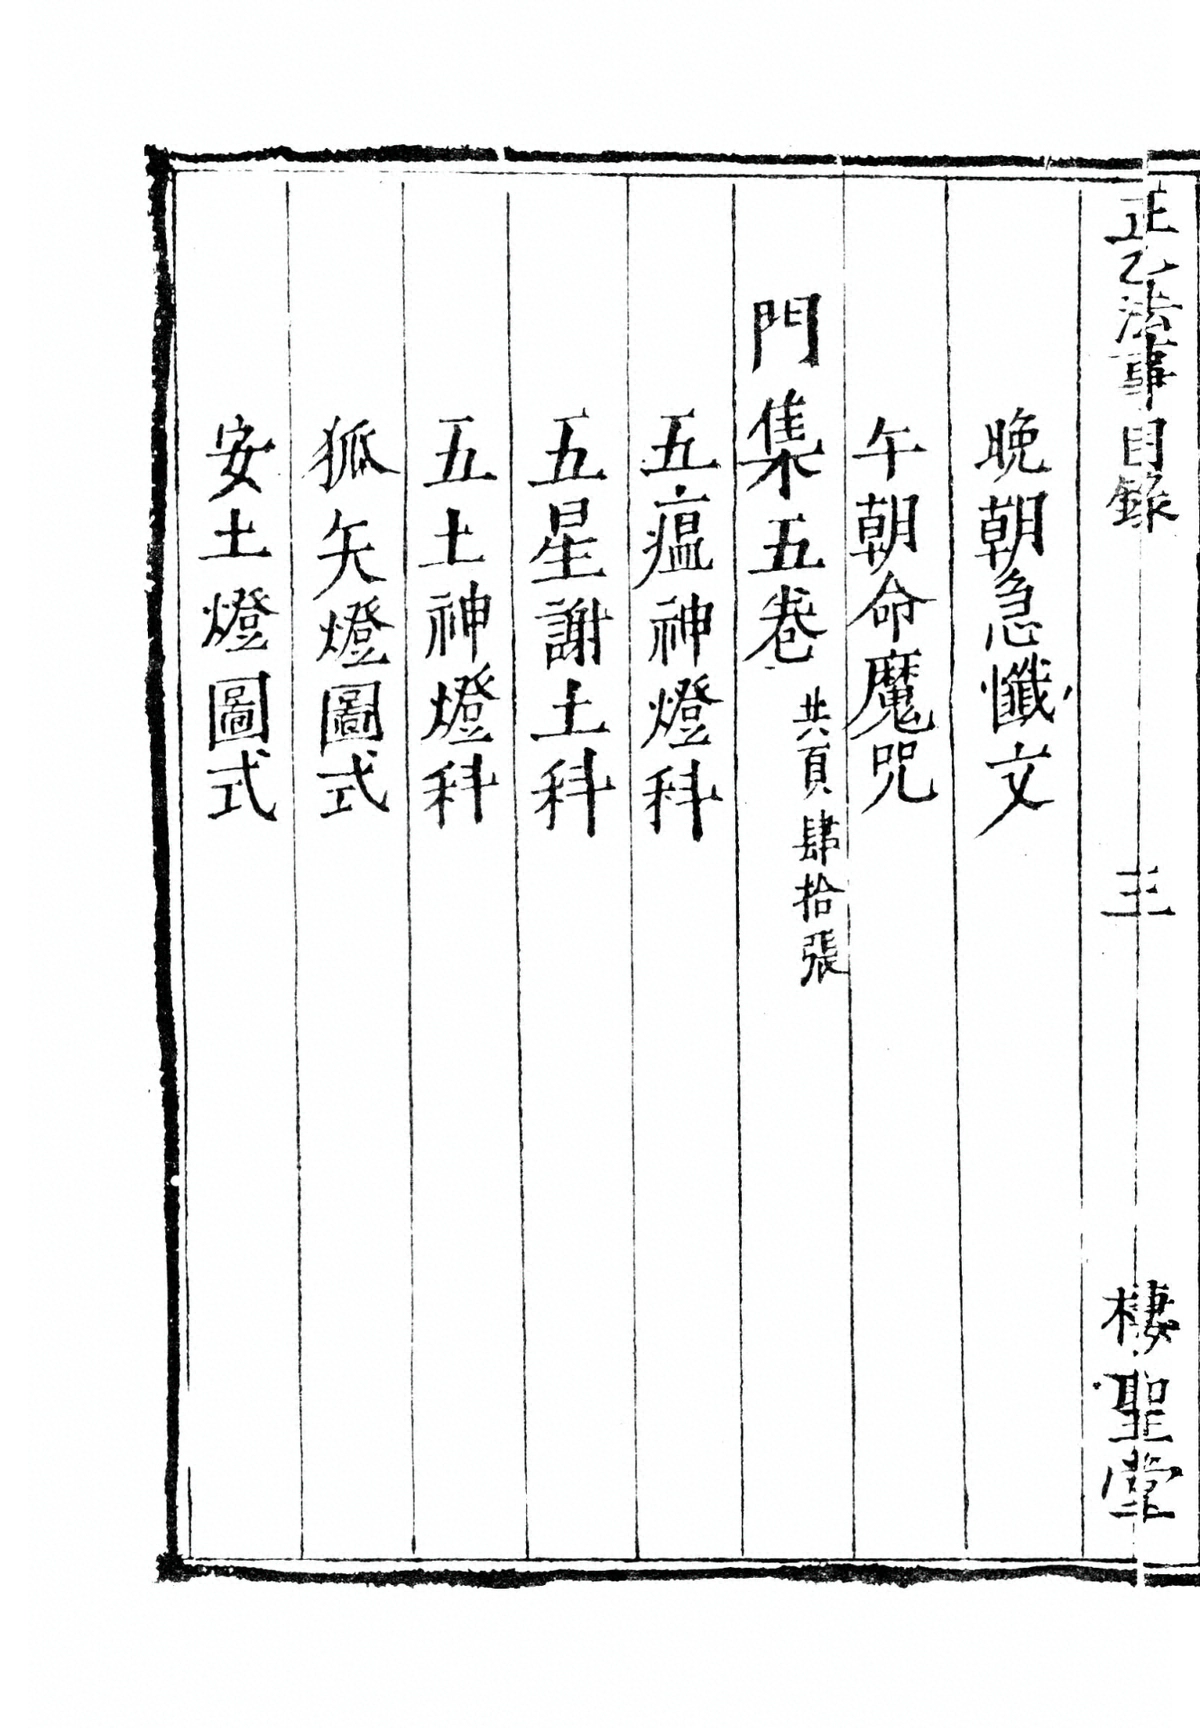 正乙法事目錄 三 棲聖堂
晚朝急懺文
午朝命魔咒
門集五卷 共頁肆拾張
五瘟神燈科
五星謝土科
五土神燈科
狐矢燈圖式
安土燈圖式